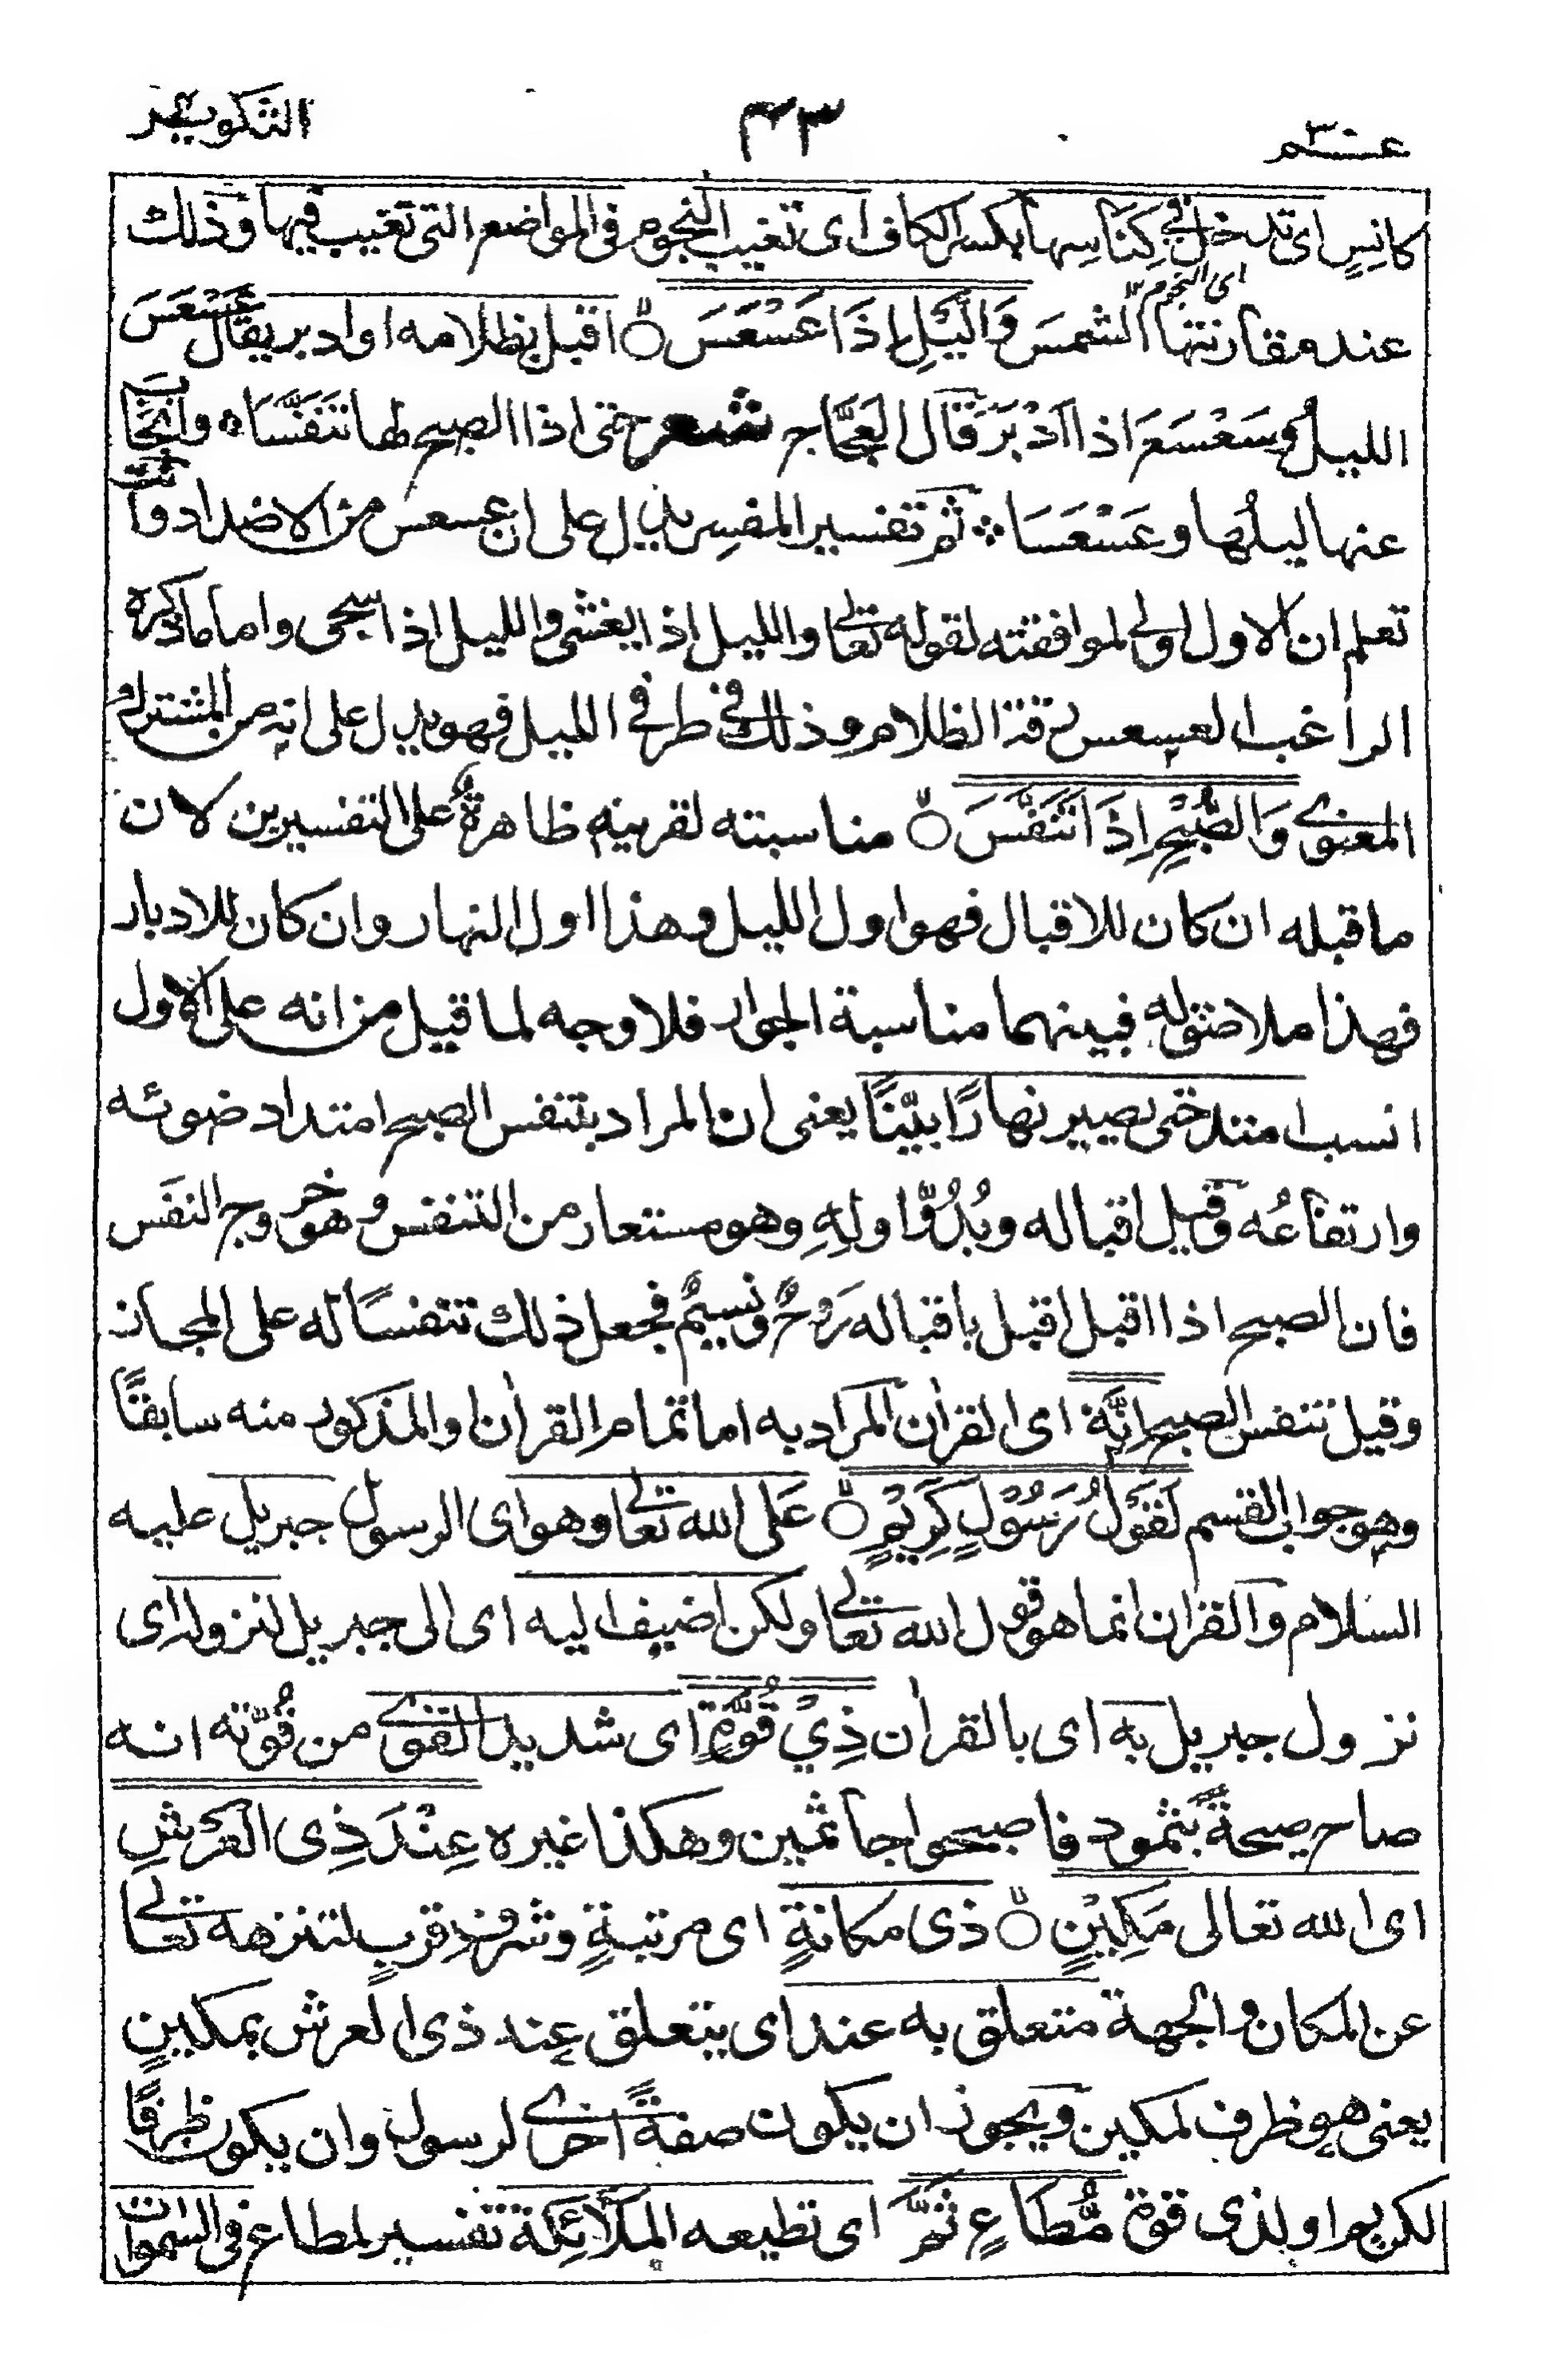 عـم ٣٠ ٤٣ التكوير
كانِسٍ اى تدخل فى كِنَاسِها بكسر الكاف اى تغيب النجوم فى المواضع التى تغيب فيها وذلك
اى النجوم ١٢
عند مقارنتها الشمسَ وَالَّيْلِ اِذَا عَسْعَسَ ۙ اقبل بظلامه او ادبر يقال عَسْعَسَ
الليلُ وسَعْسَعَ اذا اَدْبَرَ قال العَجَّاج شعر حتى اذا الصبح لها تَنَفَّسَا ؞ وانْجَابَ
عنها ليلُها وعَسْعَسَا ؞ ثم تفسير المفسِر يدل على ان عسعس من الاضداد وانت
تعلم ان الاول اولى لموافقته لقوله تعالى والليل اذا يغشى والليل اذا سجى واما ما ذكره
الراغب العسعس رقة الظلام وذلك فى طرفى الليل فهو يدل على انه من المشترك
المعنوى وَالصُّبْحِ اِذَا تَنَفَّسَ ۙ مناسبته لقرينه ظاهرة على التفسيرين لان
ما قبله ان كان للاقبال فهو اول الليل وهذا اول النهار وان كان للادبار
فهذا ملاصق له فبينهما مناسبة الجوار فلا وجه لما قيل من انه على الاول
انسب امتد حتى يصير نهارًا بيّنًا يعنى ان المراد بتنفس الصبح امتداد ضوئه
وارتفاعُه وقيل اقباله وبُدُوّ اولِهِ وهو مستعار من التنفس وهو خروج النفَس
فان الصبح اذا اقبل اقبل باقباله رَوْحٌ ونسيمٌ فجعل ذلك تنفسًا له على المجاز
وقيل تنفس الصبح اِنَّهٗ اى القراٰن المراد به اما تمام القراٰن والمذكور منه سابقًا
وهو جواب القسم لَقَوْلُ رَسُوْلٍ كَرِيْمٍ ۙ عَلى الله تعالى وهو اى الرسول جبريل عليه
السلام والقراٰن انما هو قول الله تعالى ولكن اضيف اليه اى الى جبريل لنزوله اى
نزول جبريل به اى بالقراٰن ذِيْ قُوَّةٍ اى شديد القوى من قُوّته انه
صاح صيحةً بثمود فاصبحوا جاثمين وهكذا غيره عِنْدَ ذِى الْعَرْشِ
اى الله تعالى مَكِيْنٍ ۙ ذى مكانةٍ اى مرتبةٍ وشرفٍ قربٍ لتنزهه تعالى
عن المكان والجهة متعلق به عند اى يتعلق عند ذى العرش بمكينٍ
يعنى هو ظرف لمكين ويجوز ان يكون صفةً اخرى لرسول وان يكون ظرفًا
لكريم او لذى قوة مُّطَاعٍ ثَمَّ اى تطيعه الملَائِكة تفسير لمطاع فى السموات